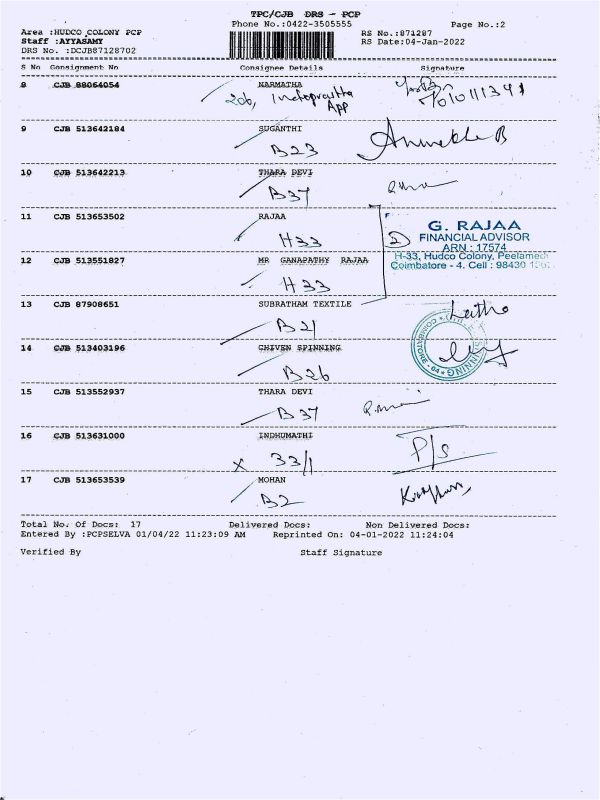 TPC/CJB DRS - PCP
Phone No.:0422-3505555 Page No.:2
Area :HUDCO COLONY PCP RS No.:871287
Staff :AYYASAMY RS Date:04-Jan-2022
DRS No. :DCJB87128702
S No Consignment No Consignee Details Signature
8 CJB 88064054 NARMATHA
206, Indraprastha
App
9 CJB 513642184 SUGANTHI
B23
10 CJB 513642213 THARA DEVI
B37
11 CJB 513653502 RAJAA
H33
G. RAJAA
FINANCIAL ADVISOR
ARN : 17574
H-33, Hudco Colony, Peelamedu
Coimbatore - 4. Cell : 98430
12 CJB 513551827 MR GANAPATHY RAJAA
H33
13 CJB 87908651 SUBRATHAM TEXTILE
B21
14 CJB 513403196 CHIVEN SPINNING
B26
SPINNING
COIMBATORE - 04
15 CJB 513552937 THARA DEVI
B37
16 CJB 513631000 INDHUMATHI
x 33/1 P/S
17 CJB 513653539 MOHAN
B2
Total No. Of Docs: 17 Delivered Docs: Non Delivered Docs:
Entered By :PCPSELVA 01/04/22 11:23:09 AM Reprinted On: 04-01-2022 11:24:04
Verified By Staff Signature